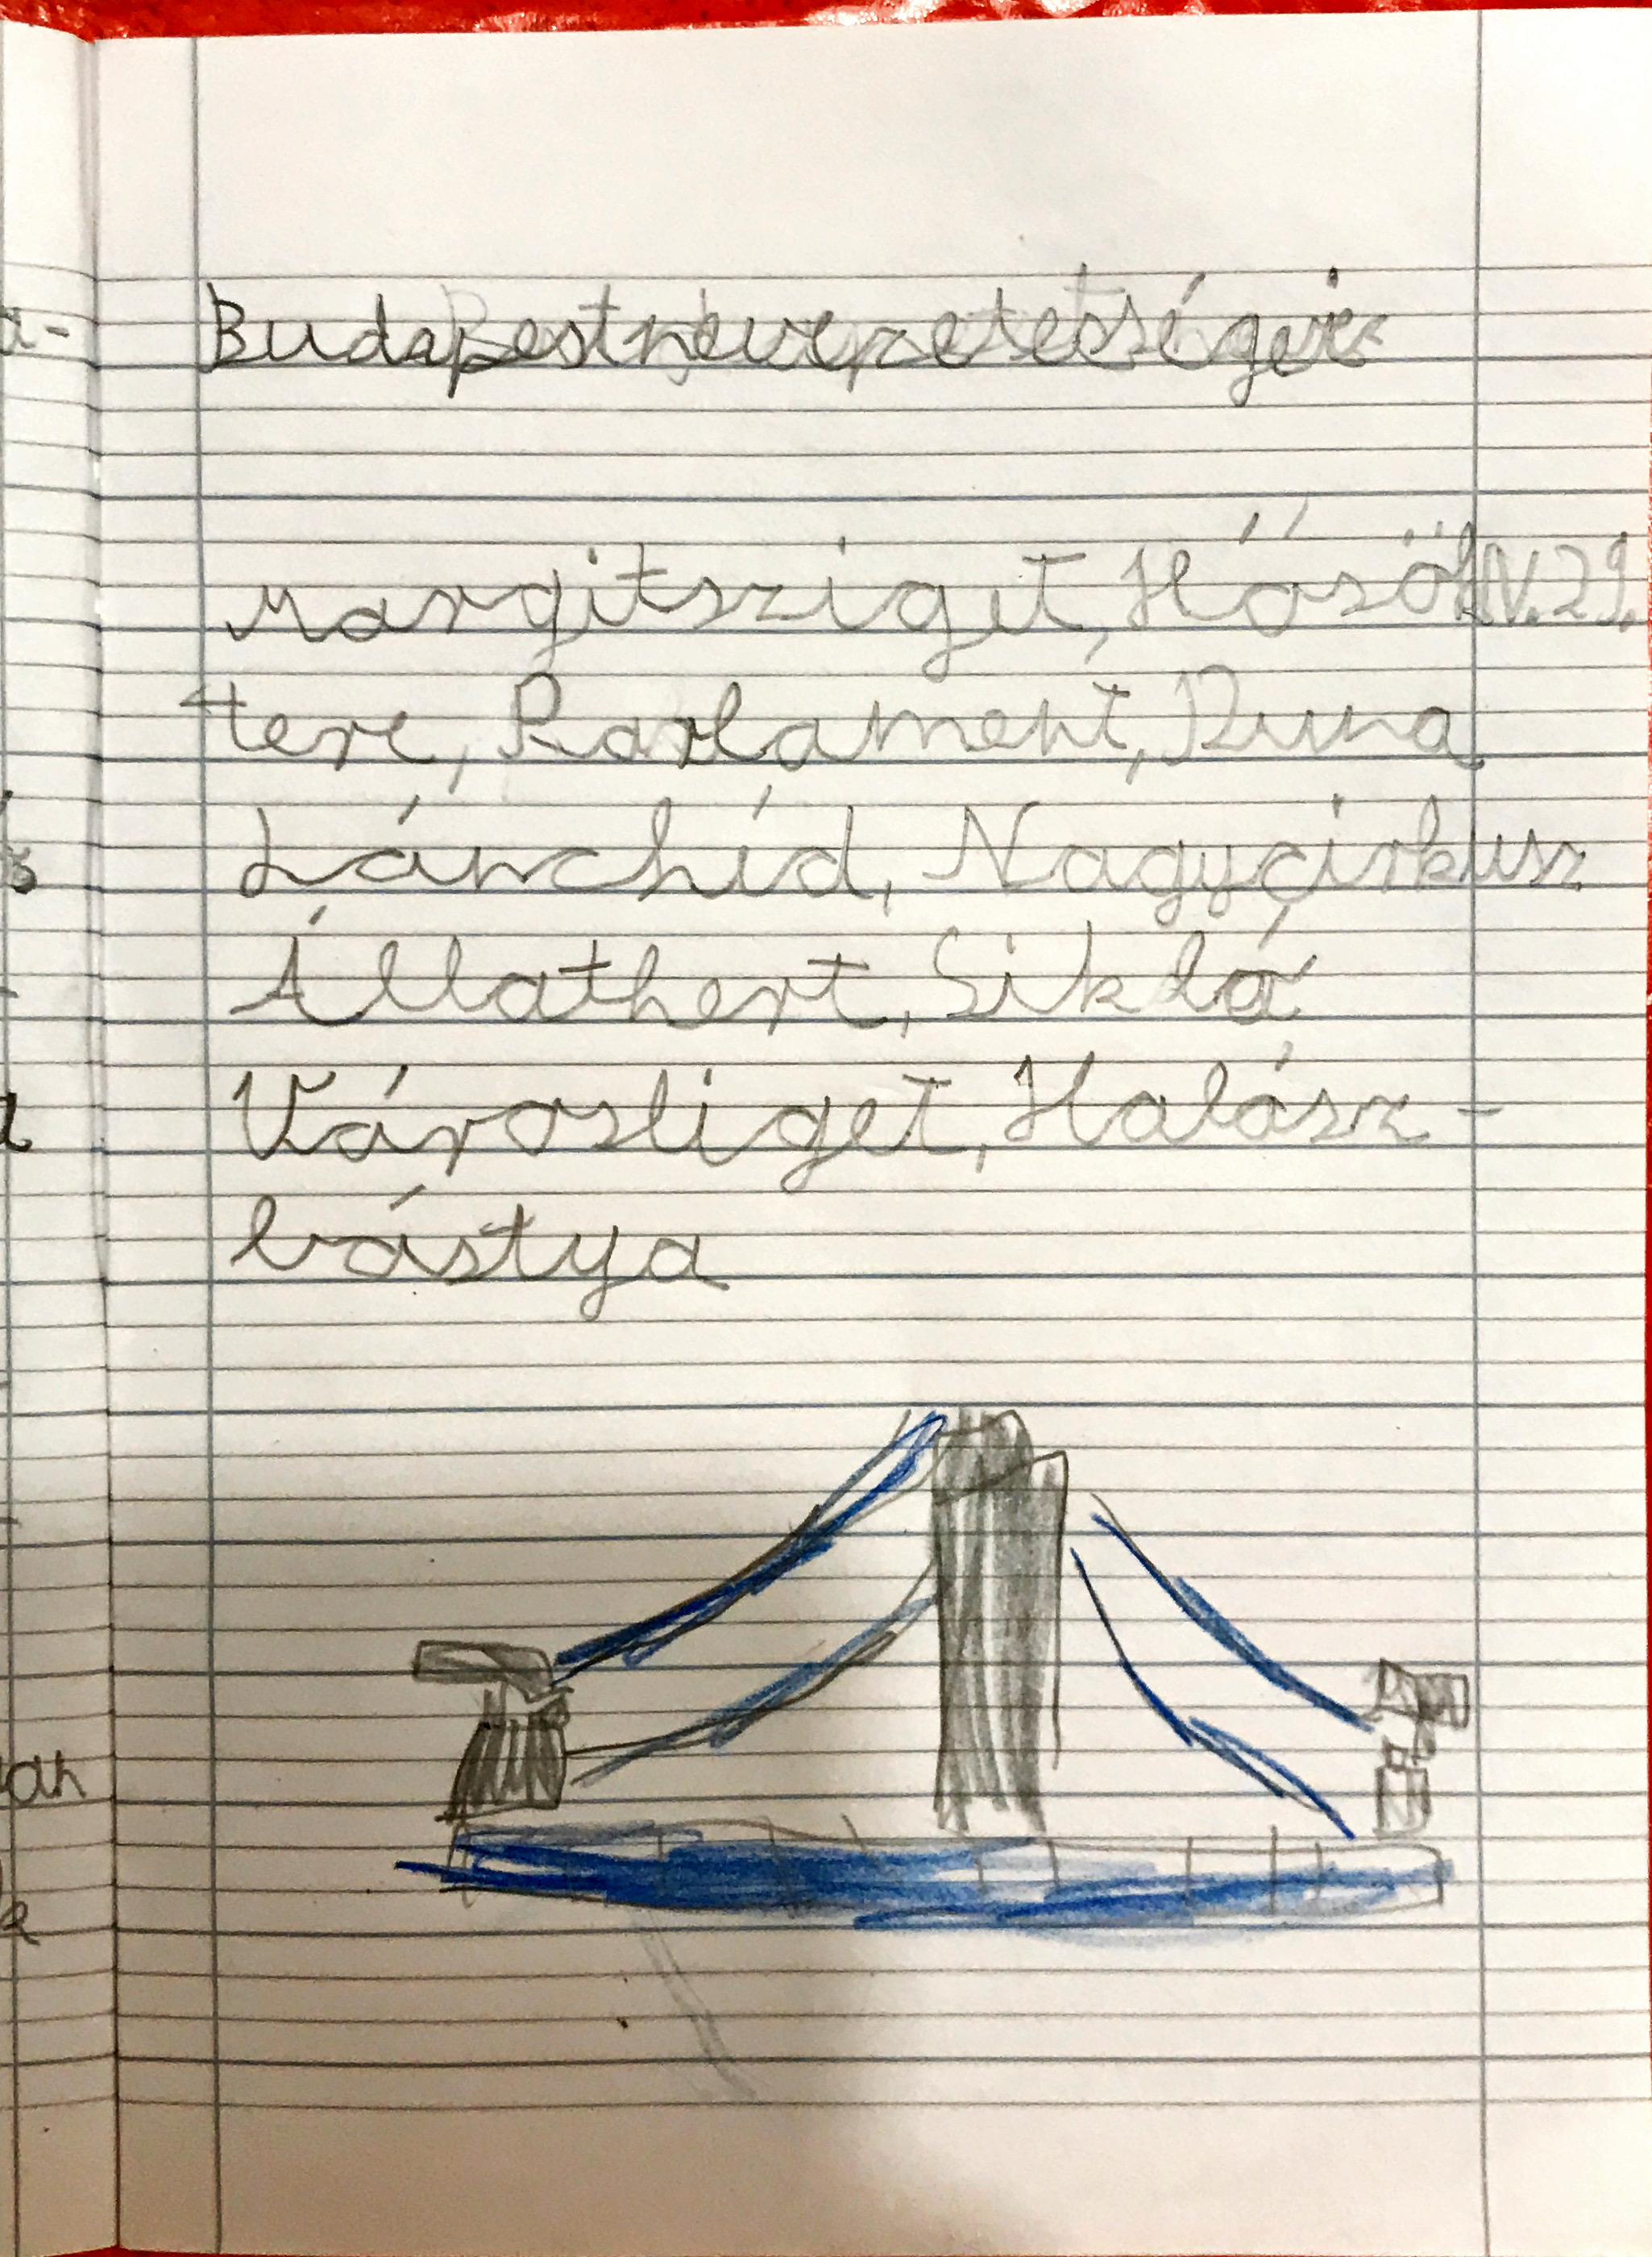 Budapest nevezetességei
Margitsziget, Hősök IV.29.
tere, Parlament, Duna
Lánchíd, Nagycirkusz
Állatkert, Sikló
Városliget, Halász-
bástya